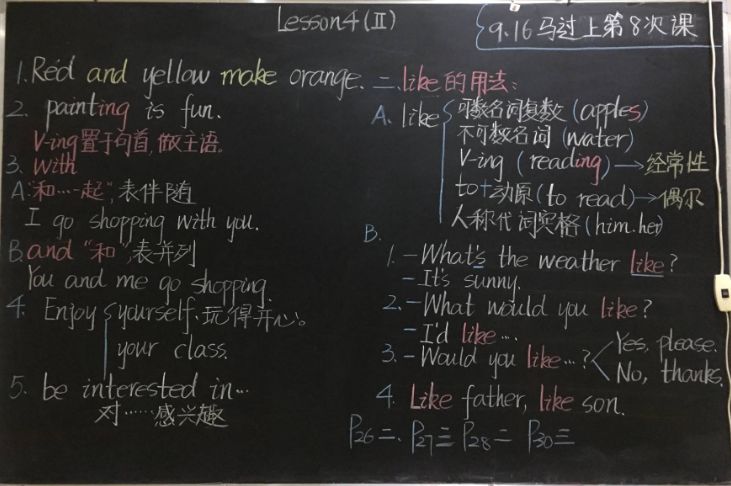 Lesson4(Ⅱ)
9.16马过上第8次课
1.Red and yellow make orange.
2. painting is fun.
V-ing置于句首,做主语。
3. with
A:"和…一起",表伴随
I go shopping with you.
B.and "和",表并列
You and me go shopping.
4. Enjoy yourself.玩得开心。
your class.
5. be interested in…
对……感兴趣
二.like的用法:
A. like
可数名词复数(apples)
不可数名词(water)
V-ing(reading)→经常性
to+动原(to read)→偶尔
人称代词宾格(him.her)
B.
1.-What's the weather like?
-It's sunny.
2.-What would you like?
-I'd like….
3.-Would you like…?
Yes, please.
No, thanks.
4. Like father, like son.
P26二. P27三 P28二 P30三